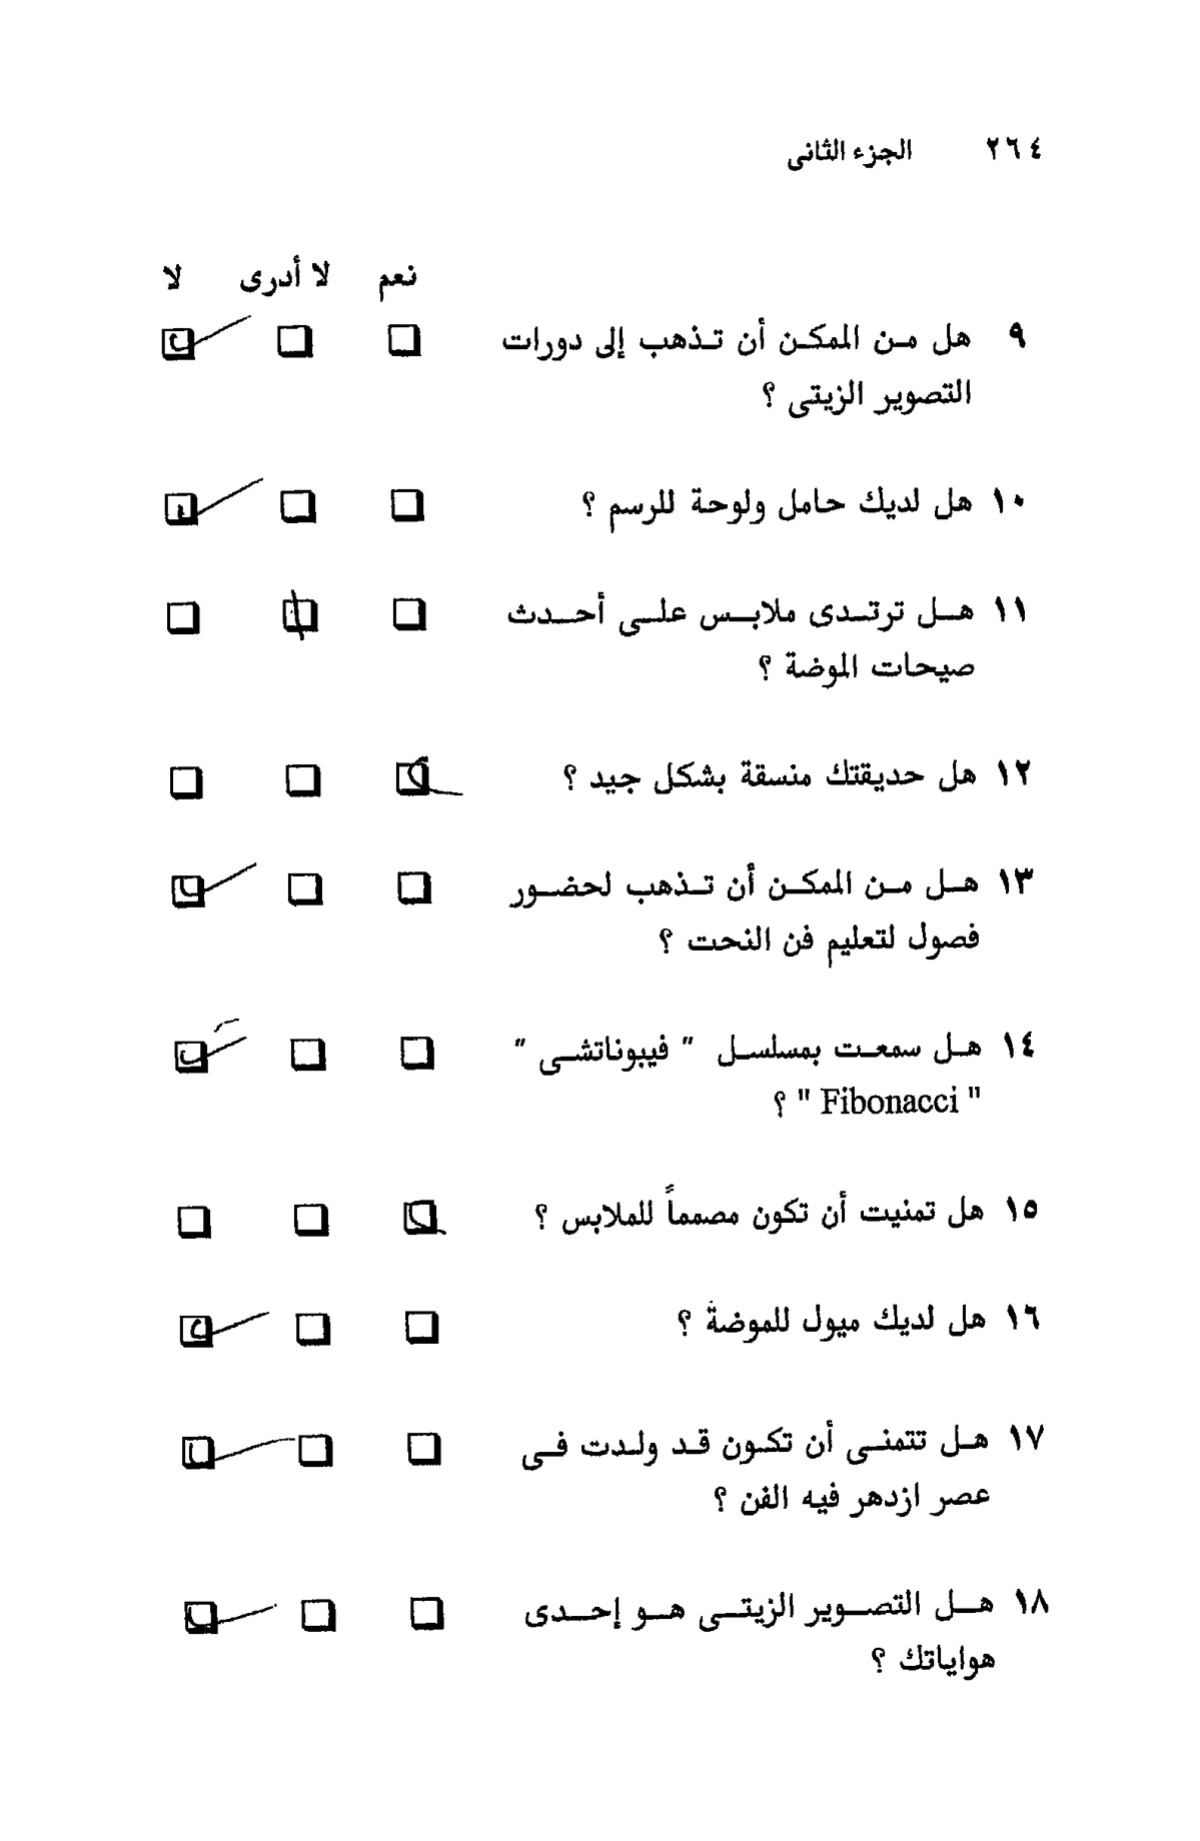 ٢٦٤ الجزء الثانى
نعم لا أدرى لا
٩ هل من الممكن أن تذهب إلى دورات
التصوير الزيتى ؟
١٠ هل لديك حامل ولوحة للرسم ؟
١١ هل ترتدى ملابس على أحدث
صيحات الموضة ؟
١٢ هل حديقتك منسقة بشكل جيد ؟
١٣ هل من الممكن أن تذهب لحضور
فصول لتعليم فن النحت ؟
١٤ هل سمعت بمسلسل " فيبوناتشى "
" Fibonacci " ؟
١٥ هل تمنيت أن تكون مصمماً للملابس ؟
١٦ هل لديك ميول للموضة ؟
١٧ هل تتمنى أن تكون قد ولدت فى
عصر ازدهر فيه الفن ؟
١٨ هل التصوير الزيتى هو إحدى
هواياتك ؟